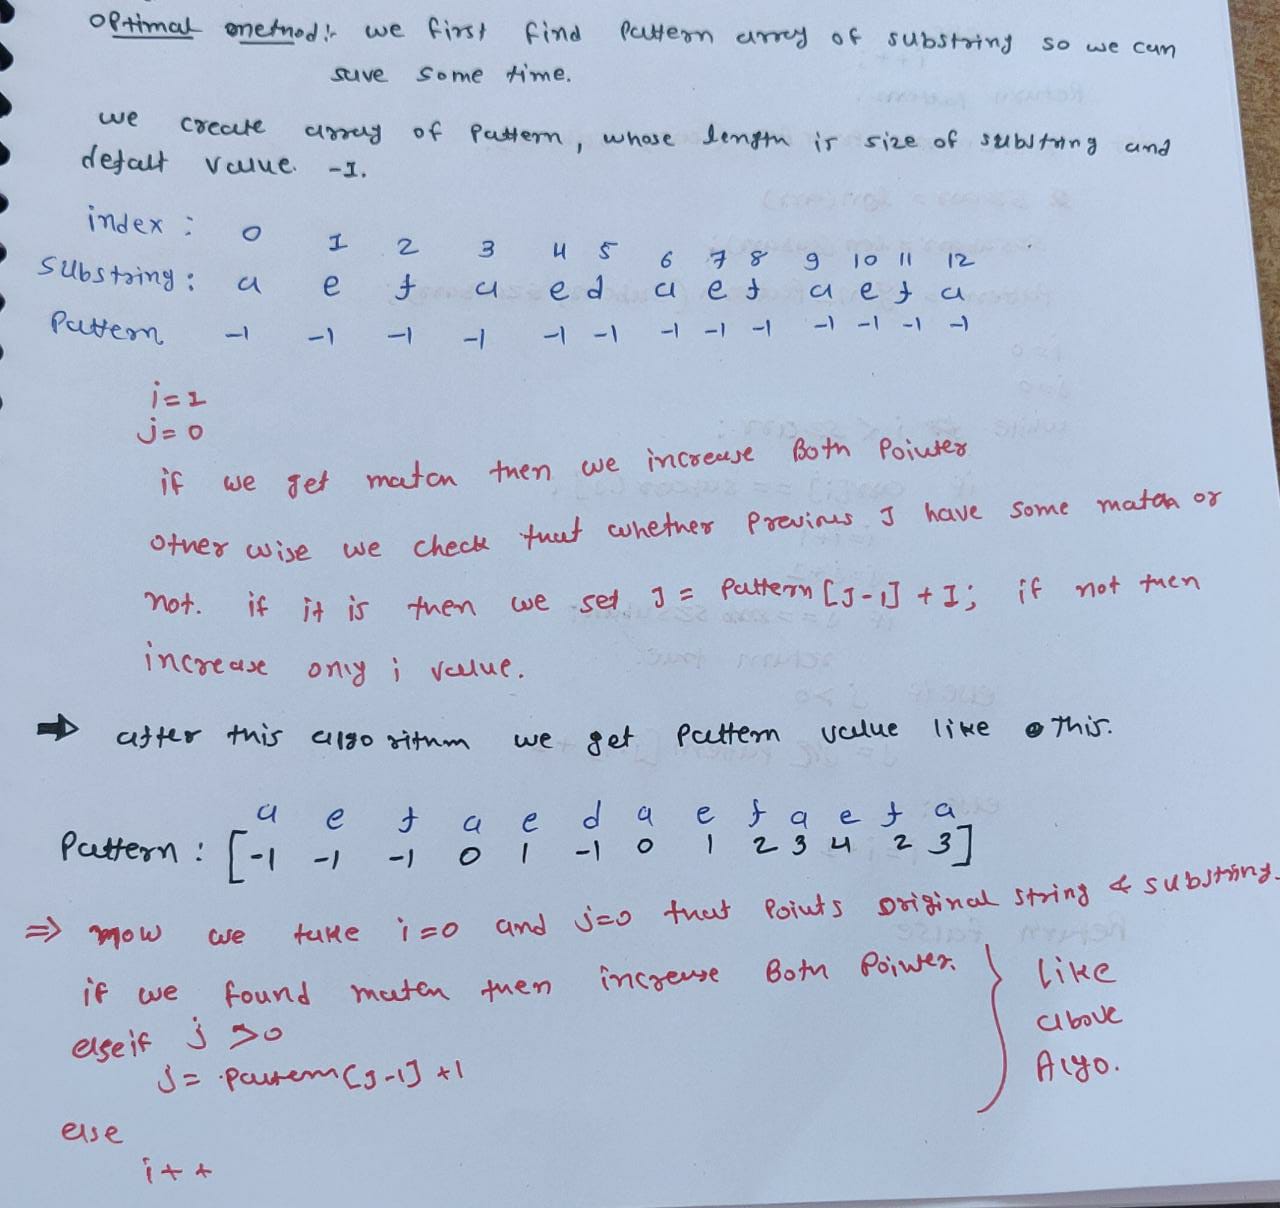 optimal method:- we first find pattern array of substring so we can
save some time.
we create array of pattern, whose length is size of substring and
defalt value -1.
index : 0 1 2 3 4 5 6 7 8 9 10 11 12
Substring : a e f a e d a e f a e f a
Pattern -1 -1 -1 -1 -1 -1 -1 -1 -1 -1 -1 -1 -1
i=1
j=0
if we get match then we increase Both Pointer
other wise we check that whether previous J have some match or
not. if it is then we set J = Pattern [J-1] + 1; if not then
increase only i value.
⇒ after this algorithm we get Pattern value like this.
a e f a e d a e f a e f a
Pattern : [-1 -1 -1 0 1 -1 0 1 2 3 4 2 3]
⇒ now we take i=0 and j=0 that points original string & substring.
if we found match then increase Both Pointer.
elseif j >0
j = Pattern[J-1] +1
else
i++
Like
above
Algo.